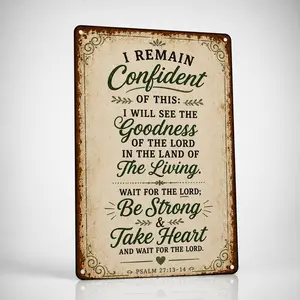 I REMAIN
Confident
OF THIS:
I WILL SEE THE
Goodness
OF THE LORD
IN THE LAND OF
The Living.
WAIT FOR THE LORD;
Be Strong
&
Take Heart
AND WAIT FOR THE LORD.
PSALM 27:13-14